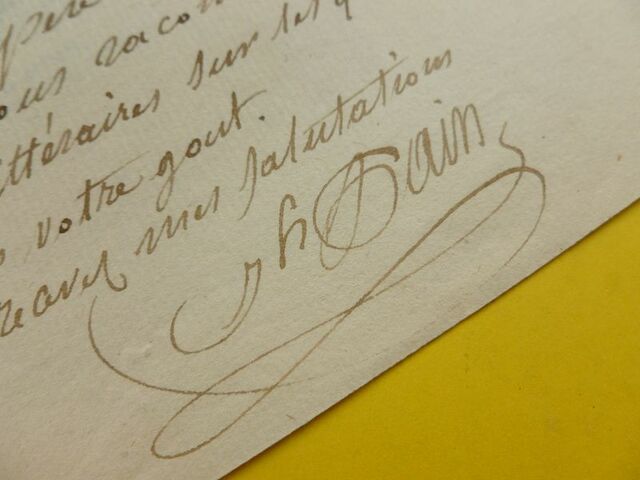 ous racon
ttéraires sur les
votre gout.
recevez mes salutations
Jh Dain